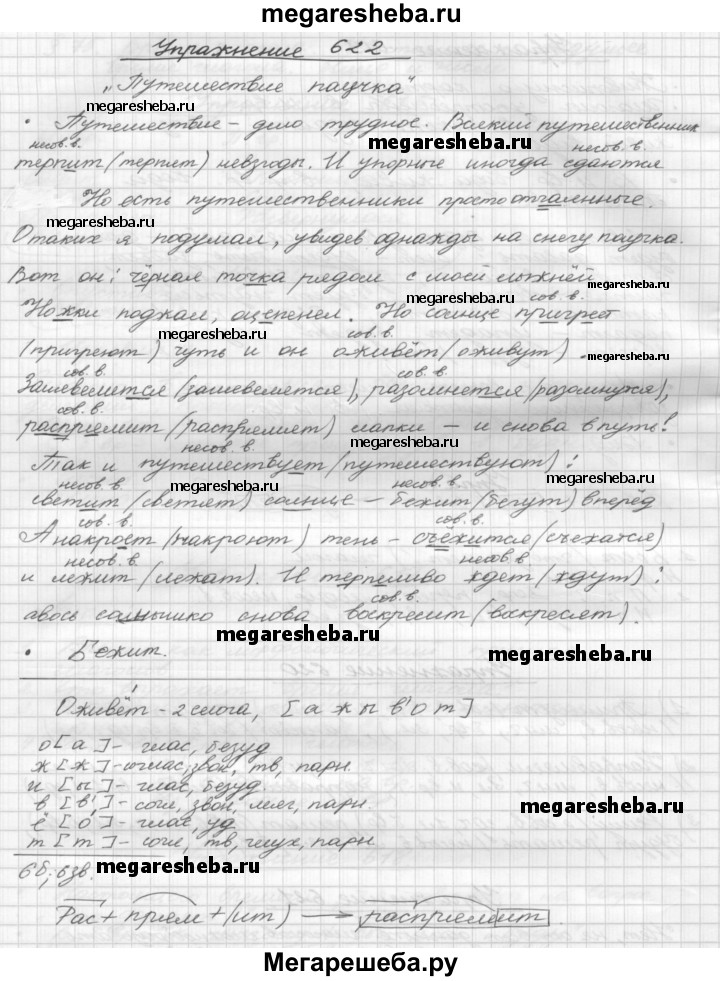 megaresheba.ru
Упражнение 622
„Путешествие паучка“
megaresheba.ru
• Путешествие – дело трудное. Всякий путешественник
несов. в. megaresheba.ru несов. в.
терпит (терпят) невзгоды. И упорные иногда сдаются
Но есть путешественники просто отчаянные.
megaresheba.ru
О таких я подумал, увидев однажды на снегу паучка.
Вот он: чёрная точка рядом с моей лыжнёй
megaresheba.ru
megaresheba.ru сов. в.
Ножки поджал, оцепенел. Но солнце пригреет
megaresheba.ru сов. в.
(пригреют) чуть и он оживёт (оживут).
megaresheba.ru
сов. в. сов. в.
Зашевелится (зашевелятся), разомнется (разомнутся),
сов. в.
расправит (расправят) лапки – и снова в путь!
несов. в. megaresheba.ru
Так и путешествует (путешествуют):
несов. в. несов. в.
светит (светят) солнце – бежит (бегут) вперёд
сов. в. сов. в.
А накроет (накроют) тень – съежится (съежатся)
несов. в. несов. в.
и лежит (лежат). И терпеливо ждет (ждут):
сов. в.
авось солнышко снова воскресит (воскресят).
megaresheba.ru
• Бежит.
Оживёт – 2 слога, [а ж ы в' о т]
о [а] – глас, безуд
ж [ж] – соглас, звон, тв, парн.
и [ы] – глас, безуд.
в [в'] – согл, звон, мяг, парн.
megaresheba.ru
ё [о] – глас, уд
т [т] – согл, тв, глух, парн.
6б, 6зв. megaresheba.ru
Рас + прям + (ит) → распрямит.
Мегарешеба.ру